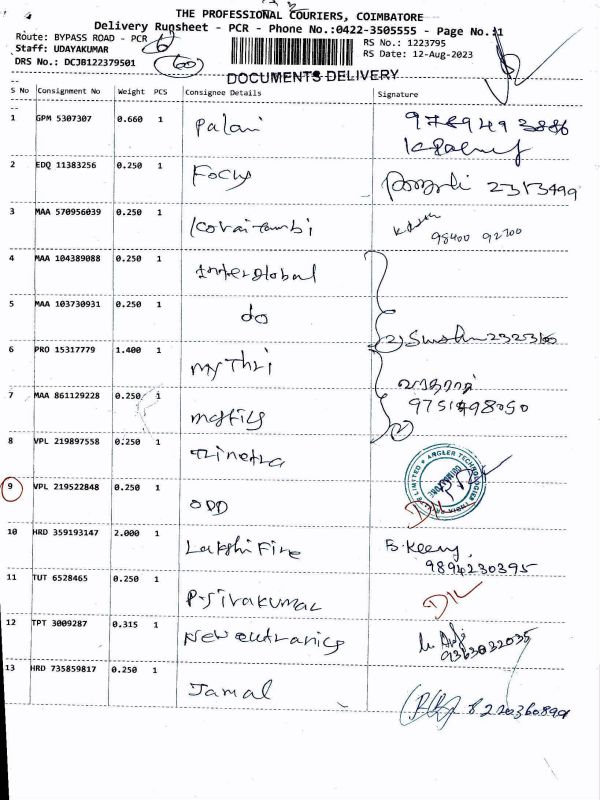 THE PROFESSIONAL COURIERS, COIMBATORE
Delivery Runsheet - PCR - Phone No.:0422-3505555 - Page No.:1
Route: BYPASS ROAD - PCR
RS No.: 1223795
Staff: UDAYAKUMAR
RS Date: 12-Aug-2023
DRS No.: DCJB122379501
60
DOCUMENTS DELIVERY
S No Consignment No Weight PCS Consignee Details Signature
1 GPM 5307307 0.660 1 Palani
2 EDQ 11383256 0.250 1 Focus 2313499
3 MAA 570956039 0.250 1 Kovai-tambi 98400 92700
4 MAA 104389088 0.250 1 Interglobal
5 MAA 103730931 0.250 1 do
6 PRO 15317779 1.400 1 myThri
7 MAA 861129228 0.250 1
8 VPL 219897558 0.250 1 Trinetra
9 VPL 219522848 0.250 1 ODD
ANGLER TECHNOLOGIES
COIMBATORE
10 HRD 359193147 2.000 1 Lakshi Fire B. Keeny
9894230395
11 TUT 6528465 0.250 1 P-Sivakumar
12 TPT 3009287 0.315 1
9363032035
13 HRD 735859817 0.250 1 Jamal